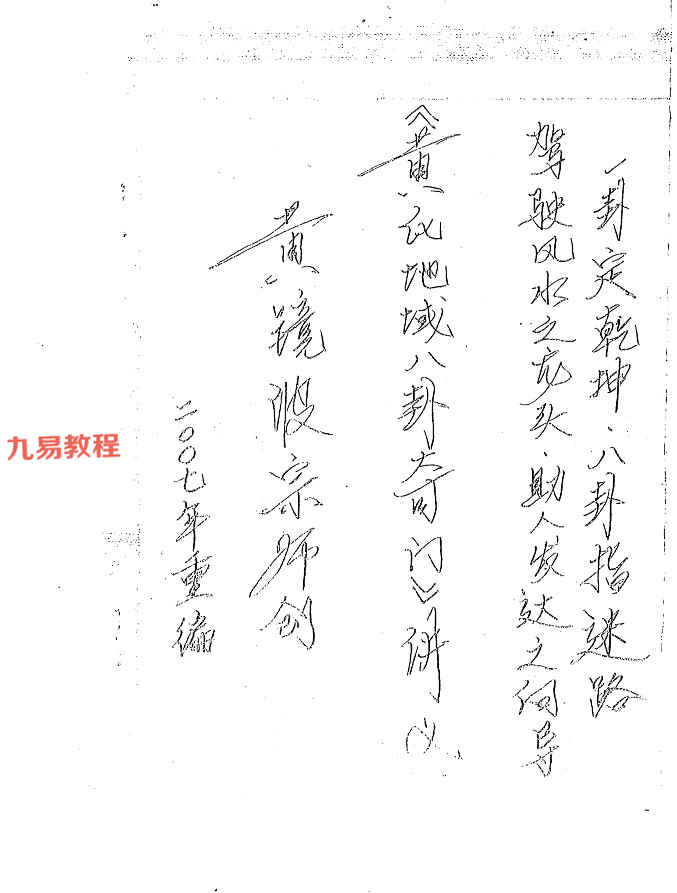 一卦定乾坤·八卦指迷路
驾驶风水之龙头·助人发达之向导
《黄氏地域八卦奇门》讲义
黄镜波宗师创
二〇〇七年重编
九易教程